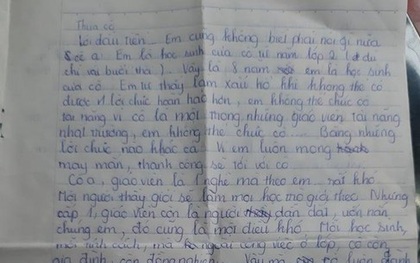 Thưa cô
Lời đầu tiên... Em cũng không biết phải nói gì nữa
cô ạ. Em là học sinh của cô từ năm lớp 2 (dù
chỉ vài buổi thôi). Vậy là 8 năm em là học sinh
của cô. Em tự thấy làm xấu hổ khi không thể có
được 1 lời chúc hoàn hảo hơn, em không thể chúc cô
tài năng vì cô là một trong những giáo viên tài năng
nhất trường, em không thể chúc cô ..... Bằng những
lời chúc nào khác cả. Vì em luôn mong
may mắn, thành công sẽ tới với cô
Cô ạ, giáo viên là 1 nghề mà theo em rất khó.
Mỗi người thầy giỏi sẽ làm mọi học trò giỏi theo. Nhưng
cấp 1, giáo viên còn là người dẫn dắt, uốn nắn
chúng em, đó cũng là một điều khó. Mỗi học sinh,
mỗi tính cách, mà ngoài công việc ở lớp, cô còn
gia đình, còn đồng nghiệp. Vậy mà cô luôn